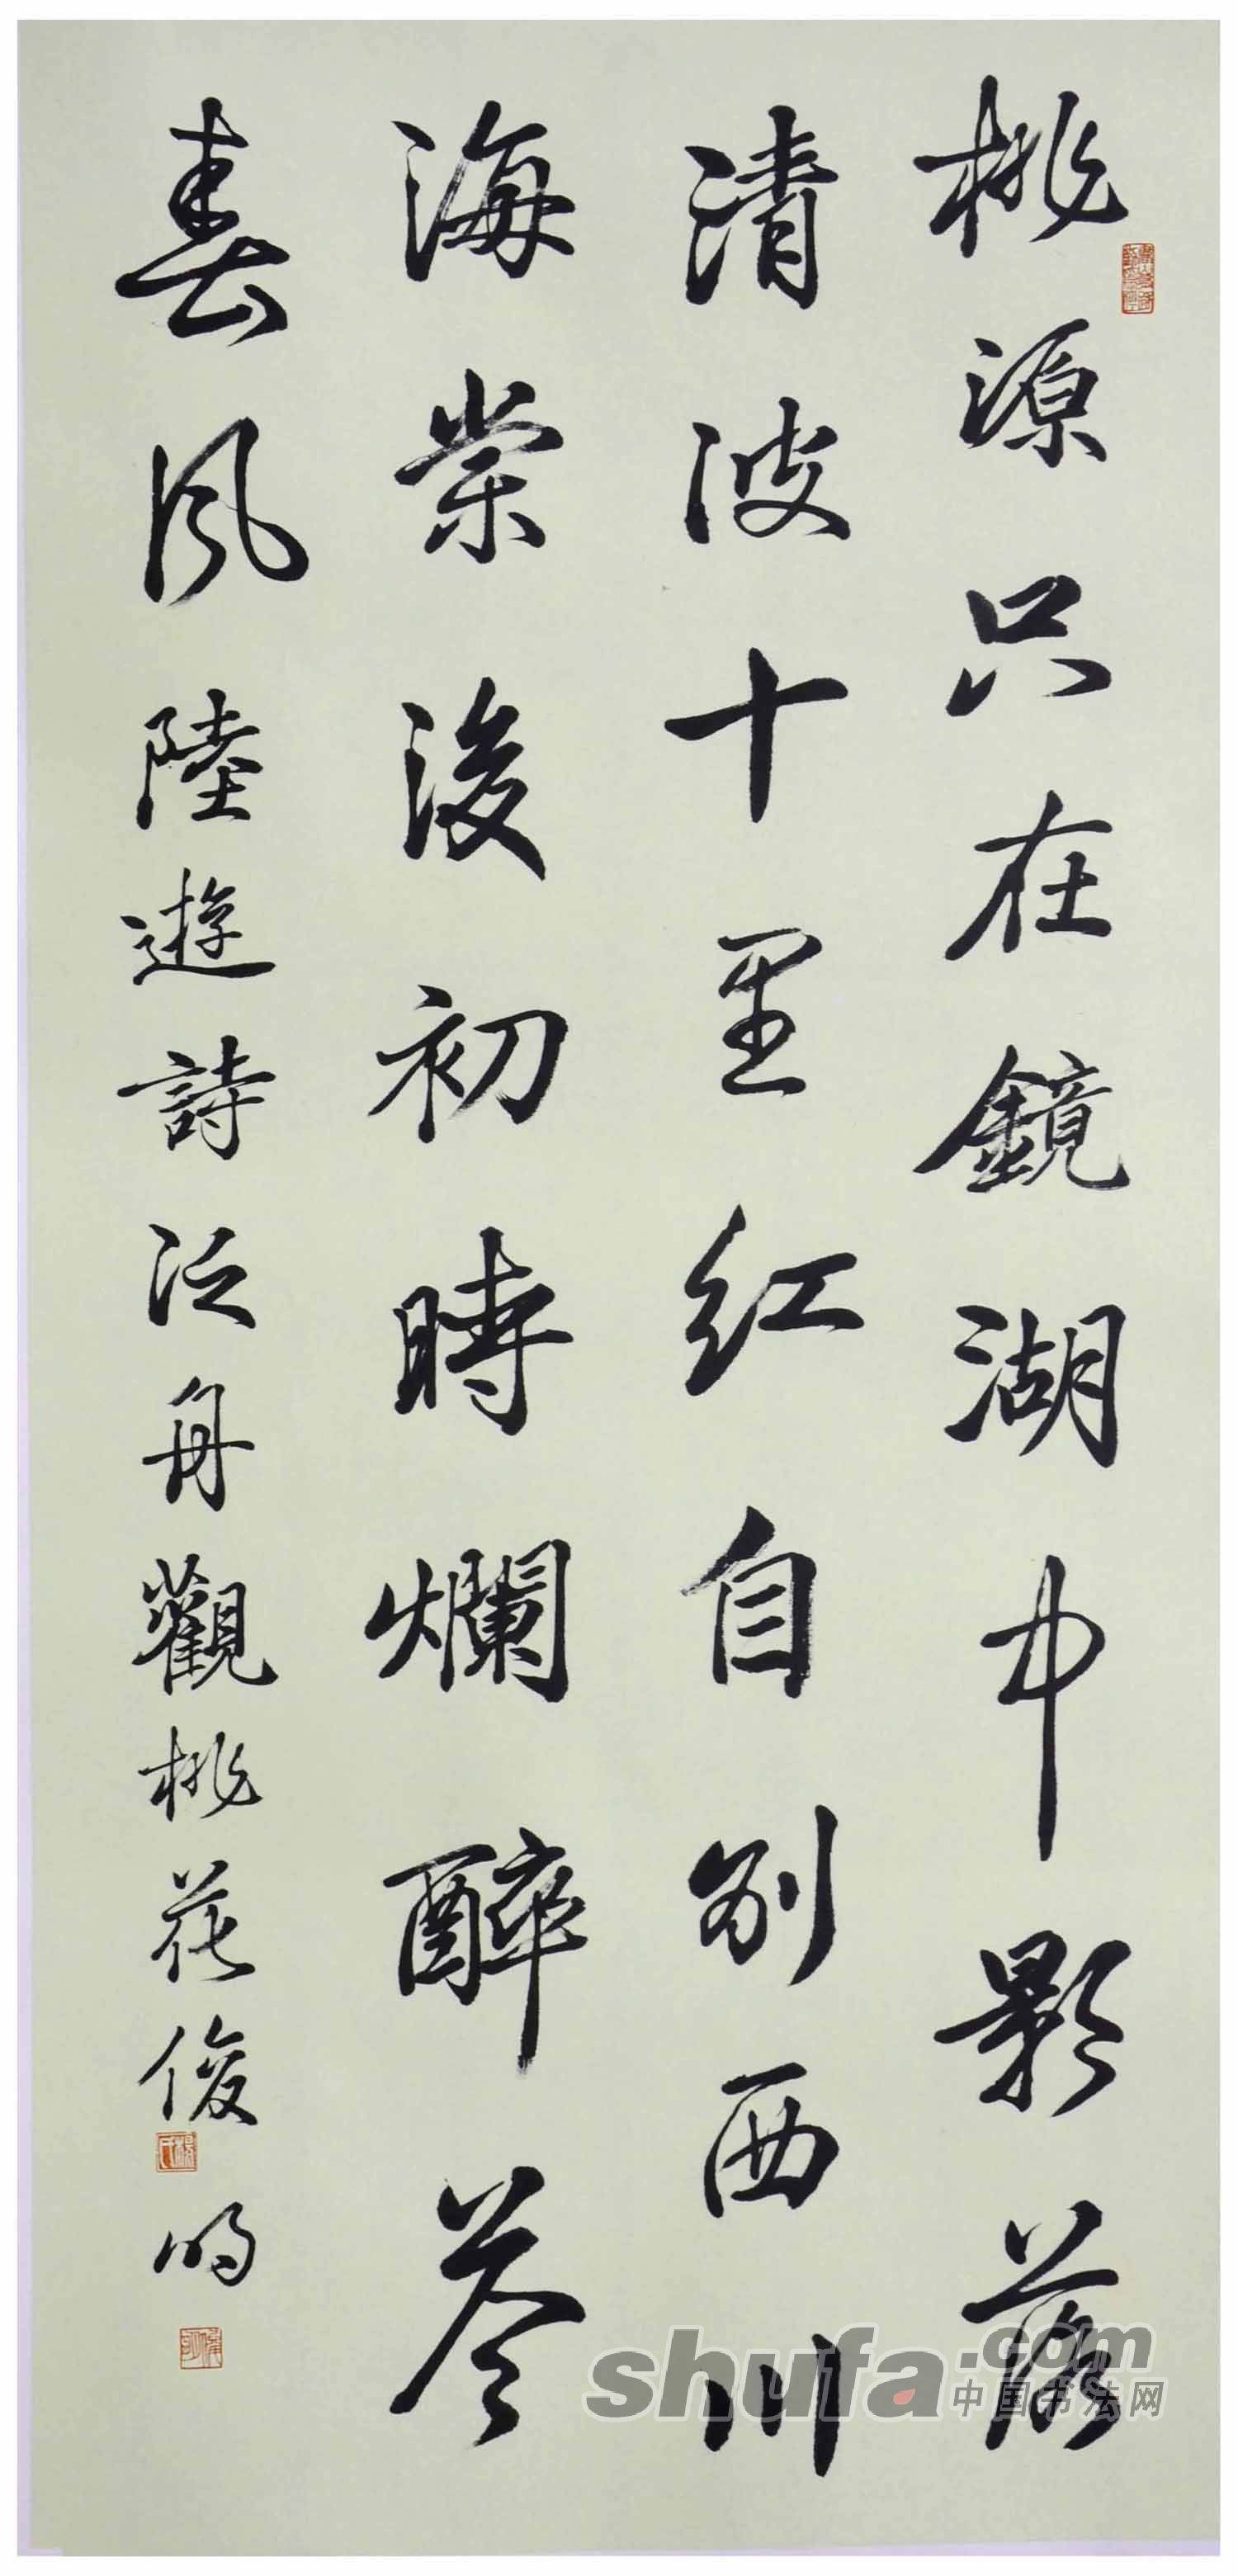 桃源只在鏡湖中影落
清波十里红自別西川
海棠後初時爛醉荅
春風 陸遊詩泛舟觀桃花俊明
shufa.com
中国书法网